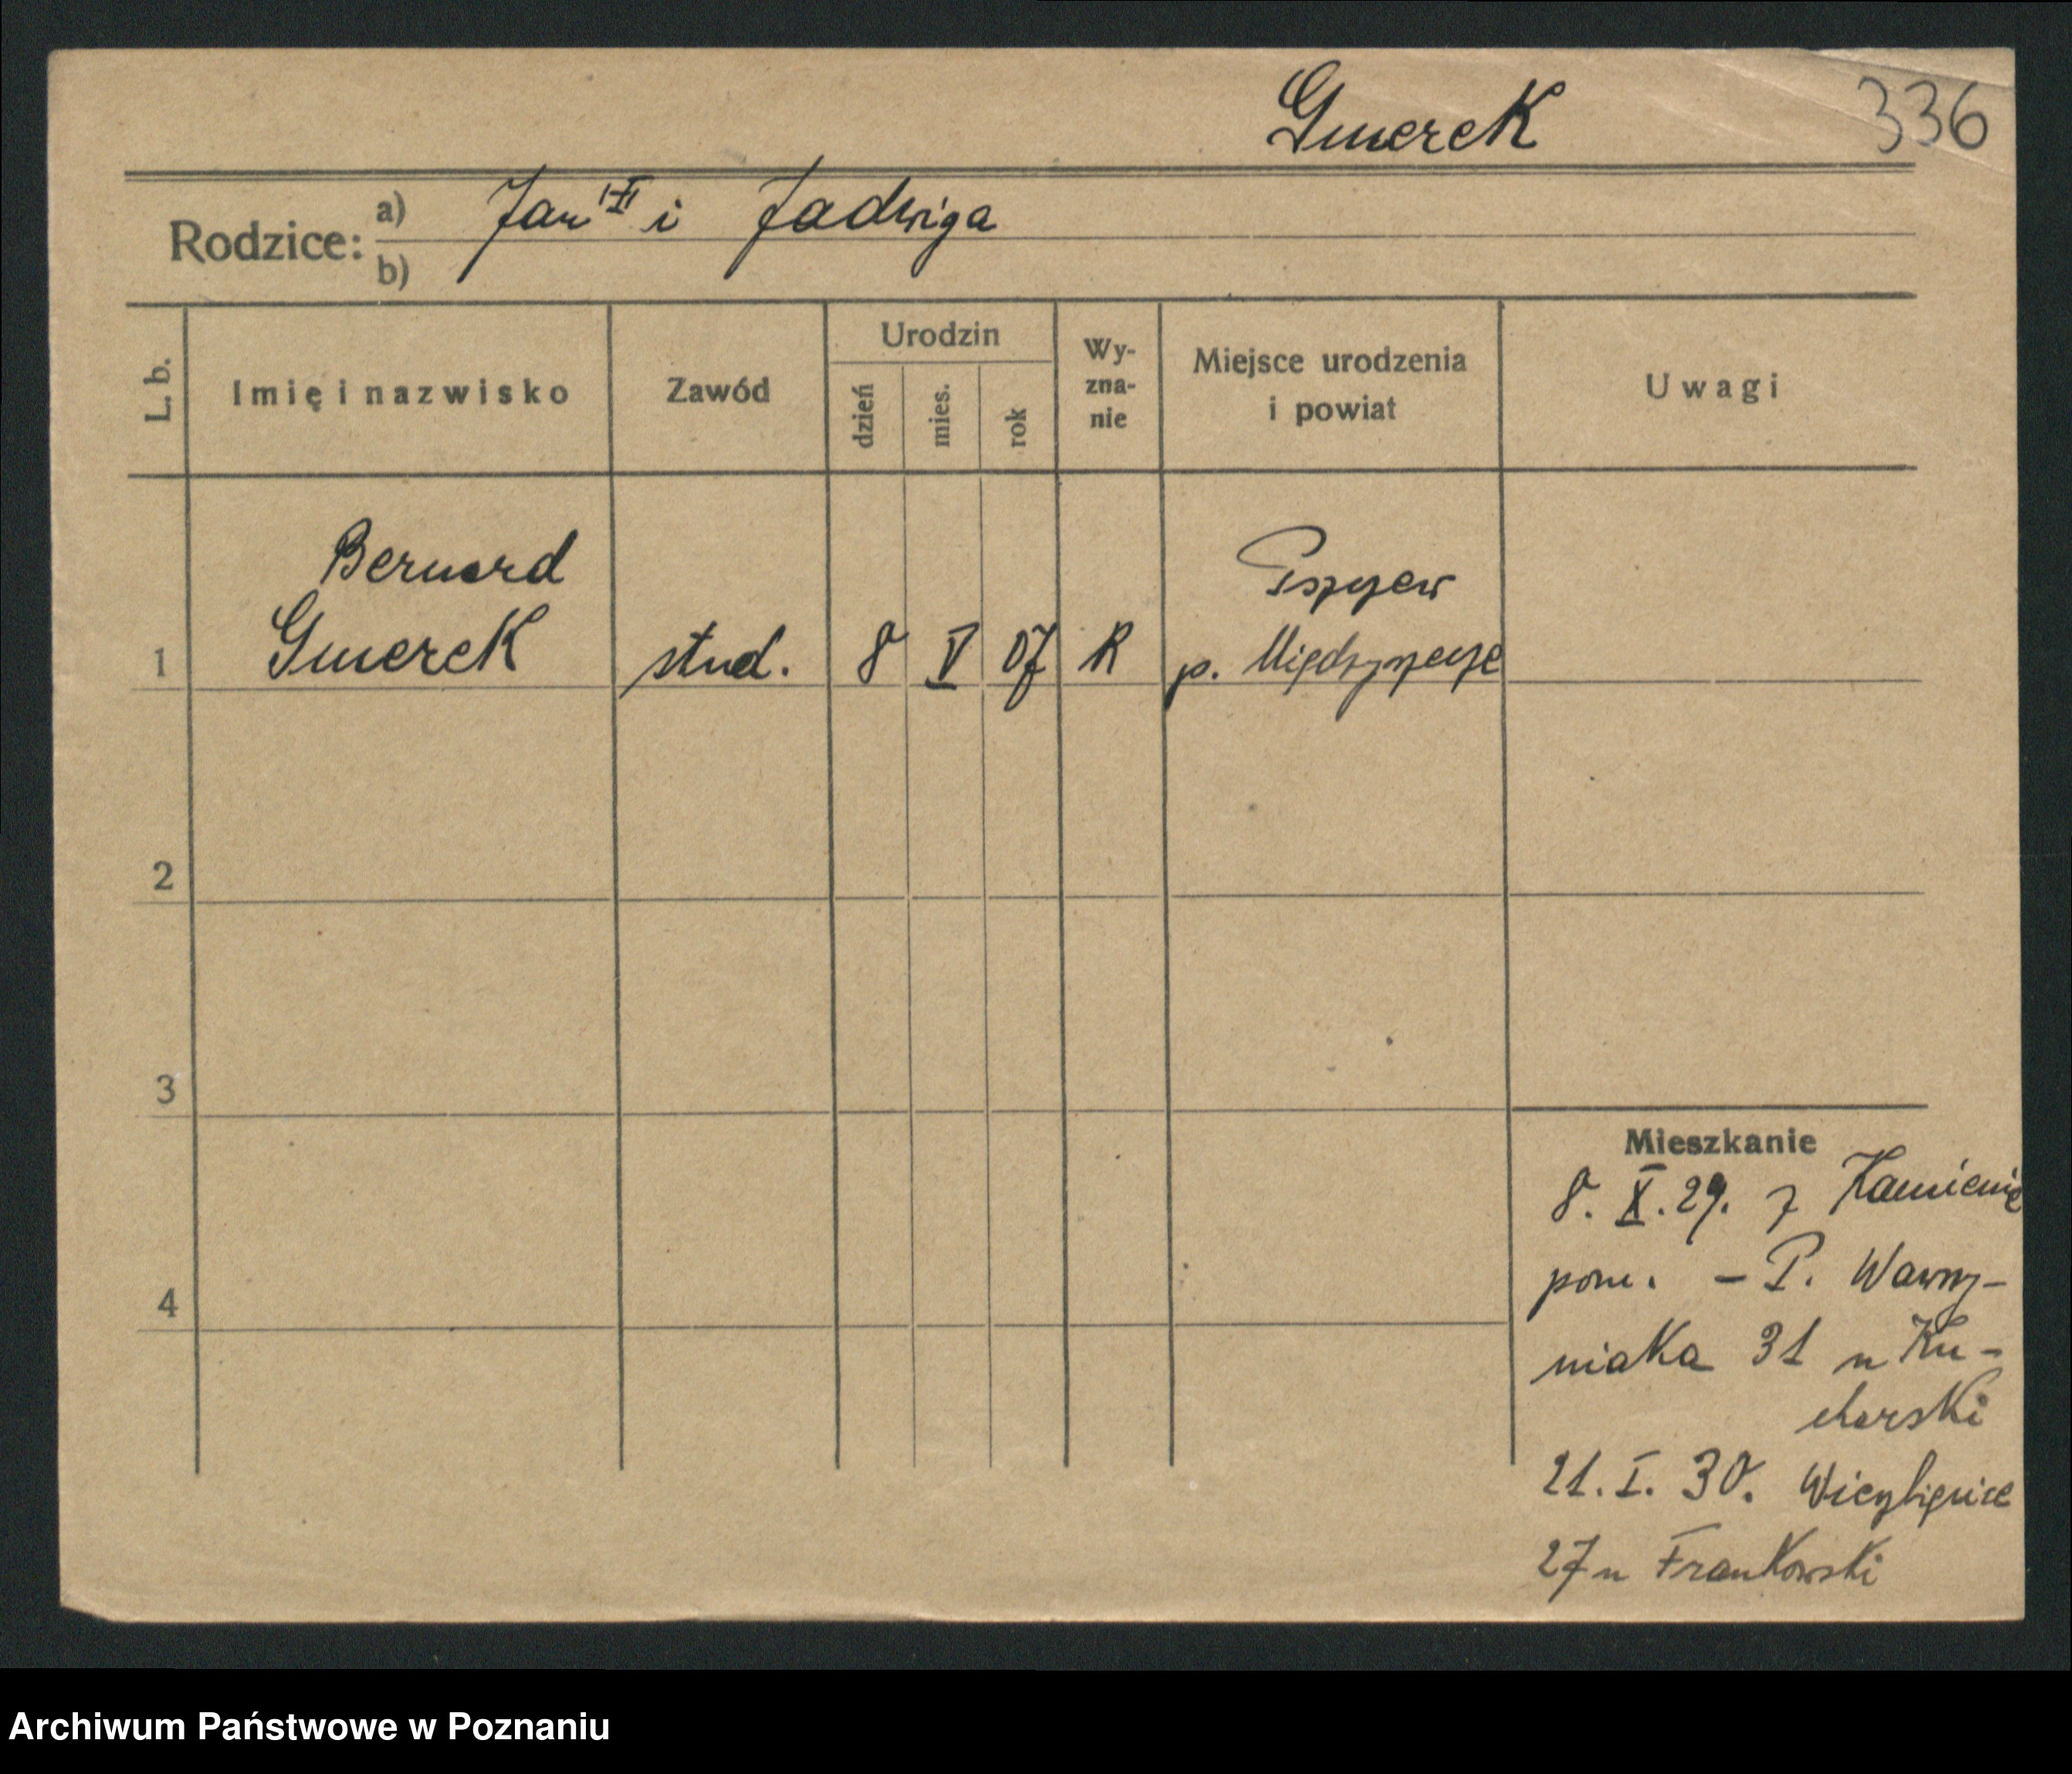 Gmerek 336
Rodzice: a) Jan i Jadwiga
b)
L. b. Imię i nazwisko Zawód Urodzin dzień mies. rok Wy-zna-nie Miejsce urodzenia i powiat Uwagi
Bernard Pszczew
1 Gmerek stud. 8 V 07 R p. Międzyrzecze
2
3
Mieszkanie
8. X. 29. z Kamienie
pom. – P. Wawrzy-
4
niaka 31 u Ku-
charski
21. I. 30. Wierzbięcice
27 u Frankowski
Archiwum Państwowe w Poznaniu